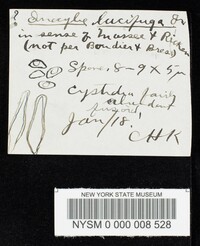 ? Inocybe lucifuga Fr
in sense of Massee & Ricken
(not per Boudier & Bres)
Spores 8-9 x 5 µ
Cystidia fairly
abundant
fusoid
Jan/18!
CHK
NEW YORK STATE MUSEUM
NYSM 0 000 008 528